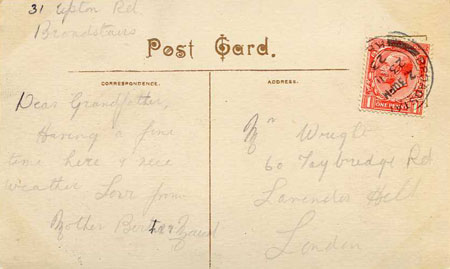 31 Upton Rd
Broadstairs
Post Card.
CORRESPONDENCE.
ADDRESS.
Dear Grandfather,
Having a fine
time here & nice
weather Love from
Mother
Mr Wright
60 Taybridge Rd
Lavender Hill
London